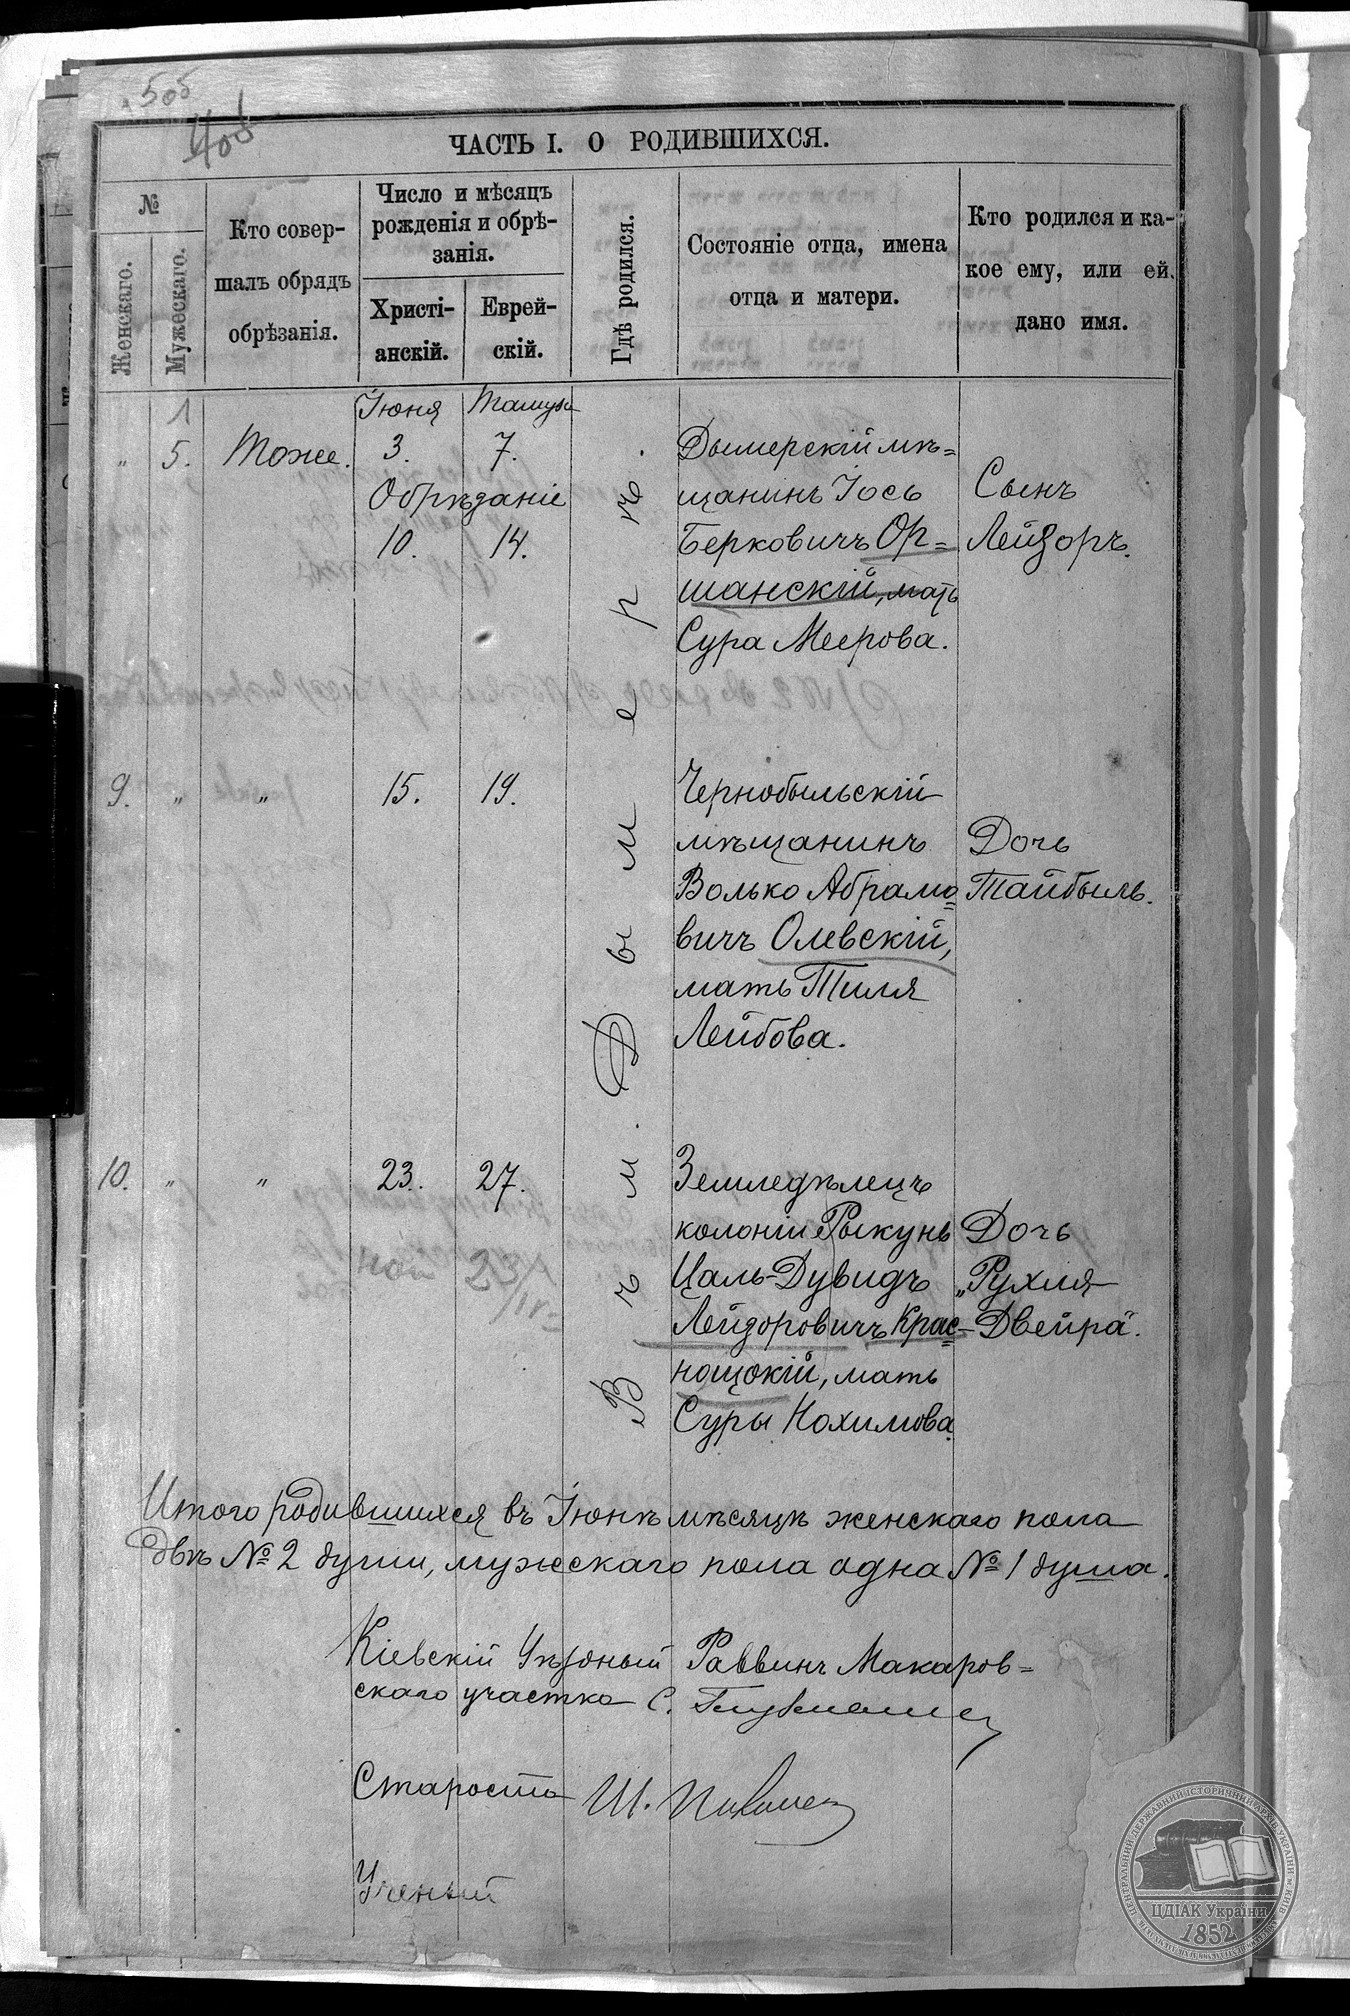 505
ЧАСТЬ I. О РОДИВШИХСЯ.
№
Женскаго.
Мужескаго.
Кто совер-
шалъ обрядъ
обрѣзанія.
Число и мѣсяцъ
рожденія и обрѣ-
занія.
Христі-
анскій.
Еврей-
скій.
Гдѣ родился.
Состояніе отца, имена
отца и матери.
Кто родился и ка-
кое ему, или ей,
дано имя.
Іюня Тамузъ
1
" 5. Тоже. 3. 7.
Обрѣзаніе
10. 14.
Въ м. Дымерѣ.
Дымерскій мѣ=
щанинъ Іось
Берковичъ Ор=
шанскій, мать
Сура Меерова.
Сынъ
Лейзоръ.
9. " " 15. 19.
Чернобыльскій
мѣщанинъ
Волько Абрамо=
вичъ Олевскій,
мать Тиля
Лейбова.
Дочь
Тайбыль.
10. " " 23. 27.
Земледѣлецъ
колоніи Рыкунь
Цаль-Дувидъ
Лейзоровичъ Крас=
нощокій, мать
Суры Нохимова.
Дочь
„Рухля-
Двейра".
Итого родившихся въ Іюнѣ мѣсяцѣ женскаго пола
двѣ № 2 души, мужескаго пола одна № 1 душа.
Кіевскій Уѣздный Раввинъ Макаров=
скаго участка С.
Староста Ш.
Ученый
ЦЕНТРАЛЬНИЙ ДЕРЖАВНИЙ ІСТОРИЧНИЙ АРХІВ УКРАЇНИ м. КИЇВ
ЦДІАК України
1852